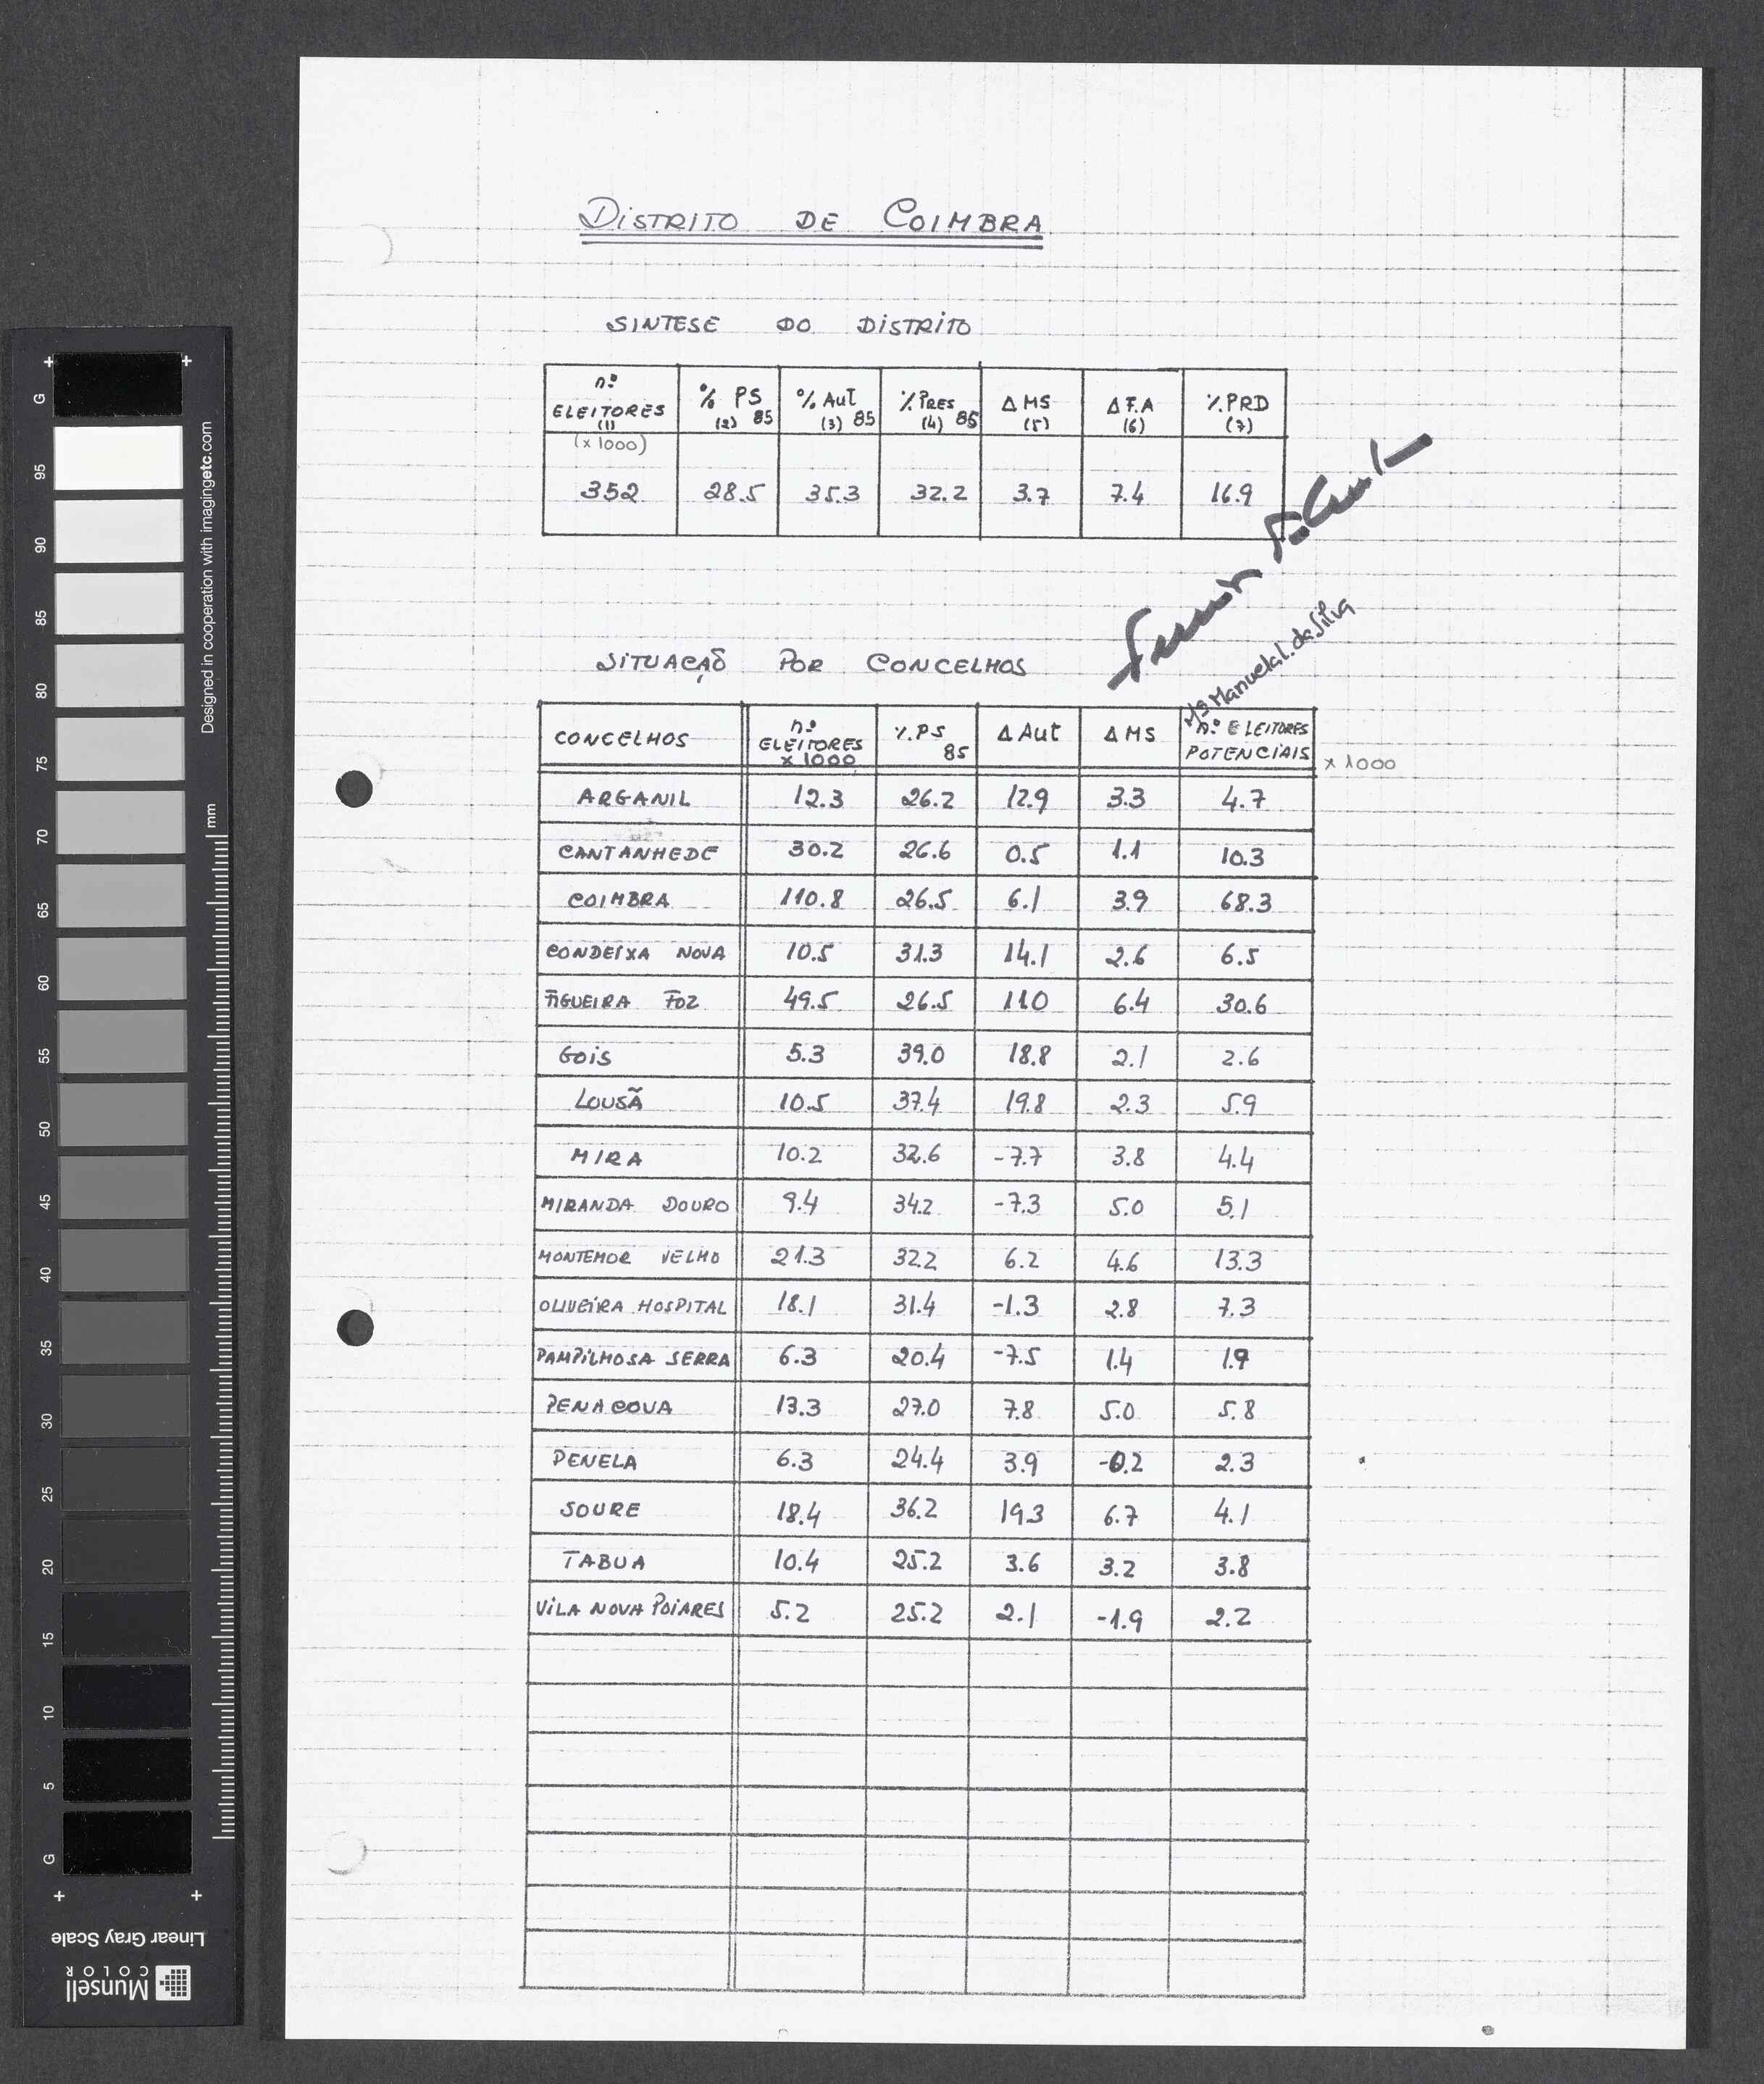 DISTRITO DE COIMBRA
SINTESE DO DISTRITO
nº ELEITORES (1) % PS (2) 85 % Aut (3) 85 % PRES (4) 85 Δ MS (5) Δ F.A (6) % PRD (7)
(x 1000)
352 28.5 35.3 32.2 3.7 7.4 16.9
Mª Manuela L. da Silva
SITUAÇÃO POR CONCELHOS
CONCELHOS nº ELEITORES x 1000 % PS 85 Δ Aut Δ MS nº ELEITORES POTENCIAIS x 1000
ARGANIL 12.3 26.2 12.9 3.3 4.7
CANTANHEDE 30.2 26.6 0.5 1.1 10.3
COIMBRA 110.8 26.5 6.1 3.9 68.3
CONDEIXA NOVA 10.5 31.3 14.1 2.6 6.5
FIGUEIRA FOZ 49.5 26.5 11.0 6.4 30.6
GOIS 5.3 39.0 18.8 2.1 2.6
LOUSÃ 10.5 37.4 19.8 2.3 5.9
MIRA 10.2 32.6 -7.7 3.8 4.4
MIRANDA DOURO 9.4 34.2 -7.3 5.0 5.1
MONTEMOR VELHO 21.3 32.2 6.2 4.6 13.3
OLIVEIRA HOSPITAL 18.1 31.4 -1.3 2.8 7.3
PAMPILHOSA SERRA 6.3 20.4 -7.5 1.4 1.9
PENACOVA 13.3 27.0 7.8 5.0 5.8
PENELA 6.3 24.4 3.9 -0.2 2.3
SOURE 18.4 36.2 19.3 6.7 4.1
TABUA 10.4 25.2 3.6 3.2 3.8
VILA NOVA POIARES 5.2 25.2 2.1 -1.9 2.2
Designed in cooperation with imagingetc.com
mm
G 95 90 85 80 75 70 65 60 55 50 45 40 35 30 25 20 15 10 5 G
Linear Gray Scale
Munsell
COLOR